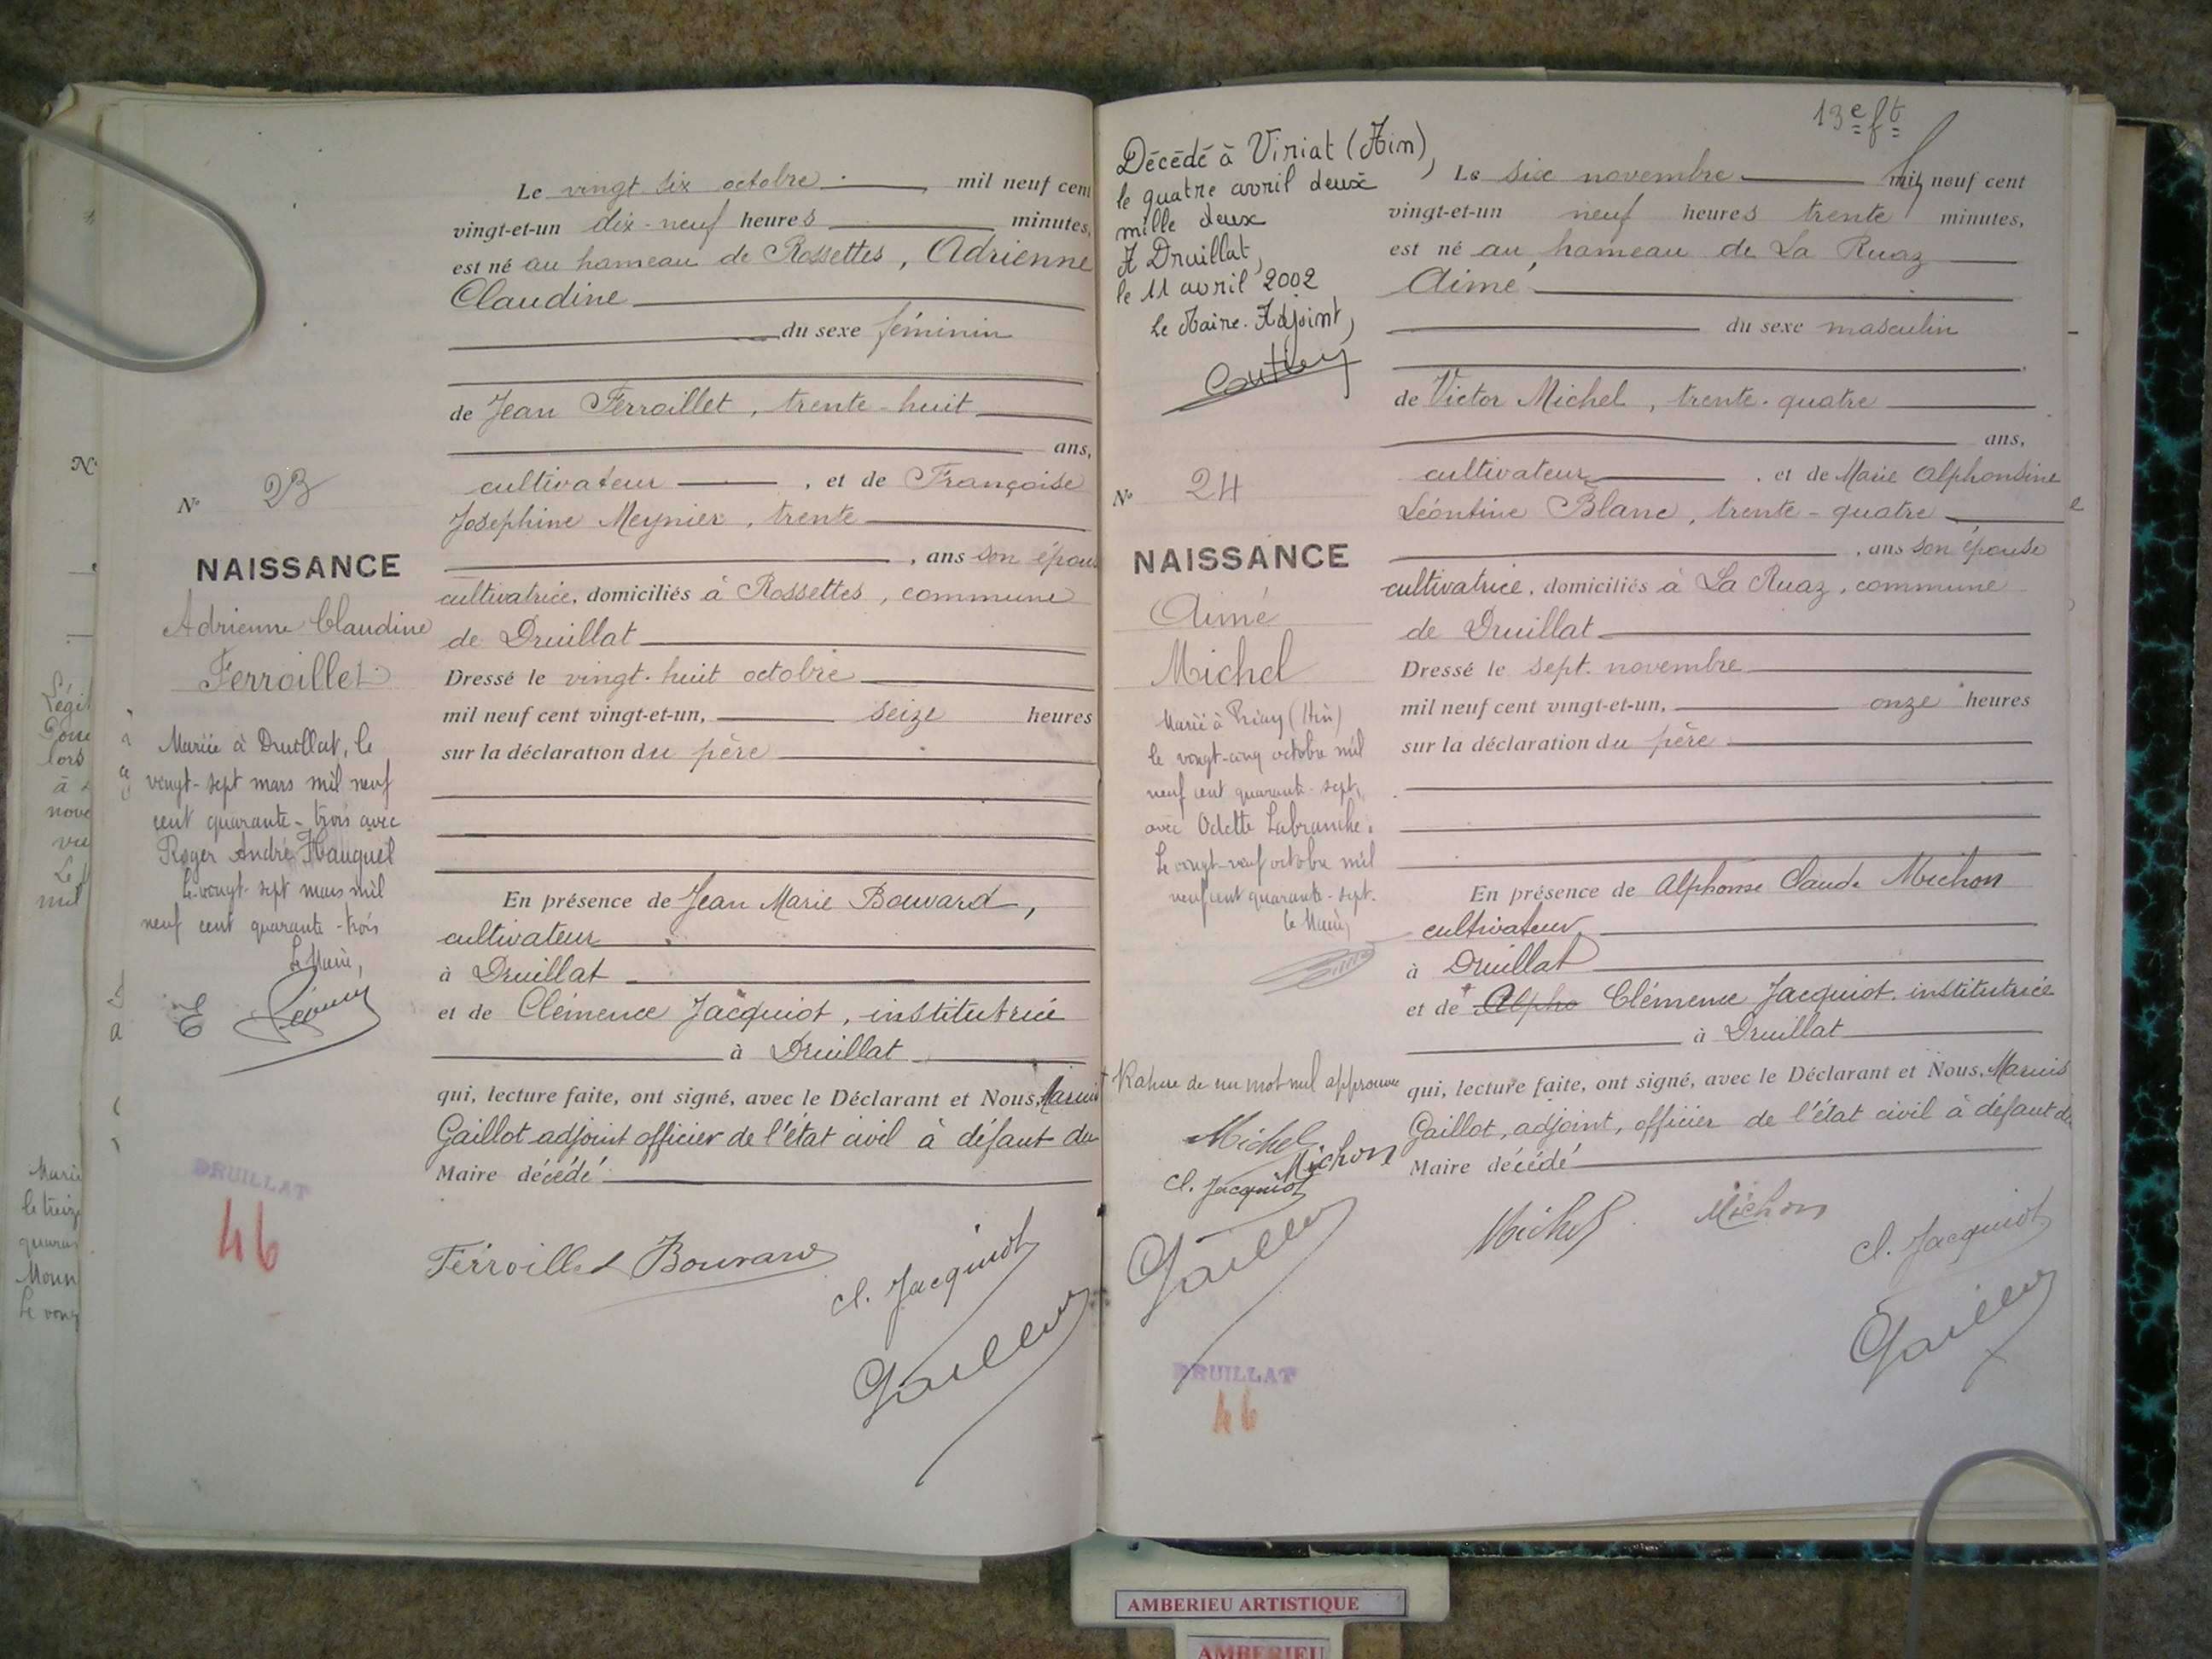 Le vingt six octobre mil neuf cent
vingt-et-un dix-neuf heures minutes,
est né au hameau de Rossettes, Adrienne
Claudine
du sexe féminin
de Jean Ferroillet, trente-huit
ans,
cultivateur, et de Françoise
Joséphine Meynier, trente
, ans son épous
cultivatrice, domiciliés à Rossettes, commune
de Druillat
Dressé le vingt-huit octobre
mil neuf cent vingt-et-un, seize heures
sur la déclaration du père
En présence de Jean Marie Bouvard,
cultivateur
à Druillat
et de Clémence Jacquiot, institutrice
à Druillat
qui, lecture faite, ont signé, avec le Déclarant et Nous, Marius
Gaillot adjoint officier de l'état civil à défaut du
Maire décédé
Ferroillet Bouvard
cl. Jacquiot
N° 23
NAISSANCE
Adrienne Claudine
Ferroillet
Mariée à Druillat, le
vingt-sept mars mil neuf
cent quarante-trois avec
Roger André Hauquel
Le vingt-sept mars mil
neuf cent quarante-trois
Le Maire,
DRUILLAT
46
13e ft
Décédé à Viriat (Ain),
le quatre avril deux
mille deux
A Druillat,
le 11 avril 2002
Le Maire-Adjoint,
N° 24
NAISSANCE
Aimé
Michel
Marié à Priay (Ain)
le vingt-cinq octobre mil
neuf cent quarante-sept,
avec Odette Labranche.
Le vingt-neuf octobre mil
neuf cent quarante-sept.
Le Maire,
Rature de un mot nul approuvée
Michel
Michon
Cl. Jacquiot
DRUILLAT
46
Le six novembre mil neuf cent
vingt-et-un neuf heures trente minutes,
est né au hameau de La Ruaz
Aimé
du sexe masculin
de Victor Michel, trente-quatre
ans,
cultivateur, et de Marie Alphonsine
Léontine Blanc, trente-quatre
, ans son épouse
cultivatrice, domiciliés à La Ruaz, commune
de Druillat
Dressé le sept novembre
mil neuf cent vingt-et-un, onze heures
sur la déclaration du père
En présence de Alphonse Claude Michon
cultivateur
à Druillat
et de Alpho Clémence Jacquiot, institutrice
à Druillat
qui, lecture faite, ont signé, avec le Déclarant et Nous, Marius
Gaillot, adjoint, officier de l'état civil à défaut du
Maire décédé
Michel Michon
cl. Jacquiot
AMBERIEU ARTISTIQUE
AMBERIEU